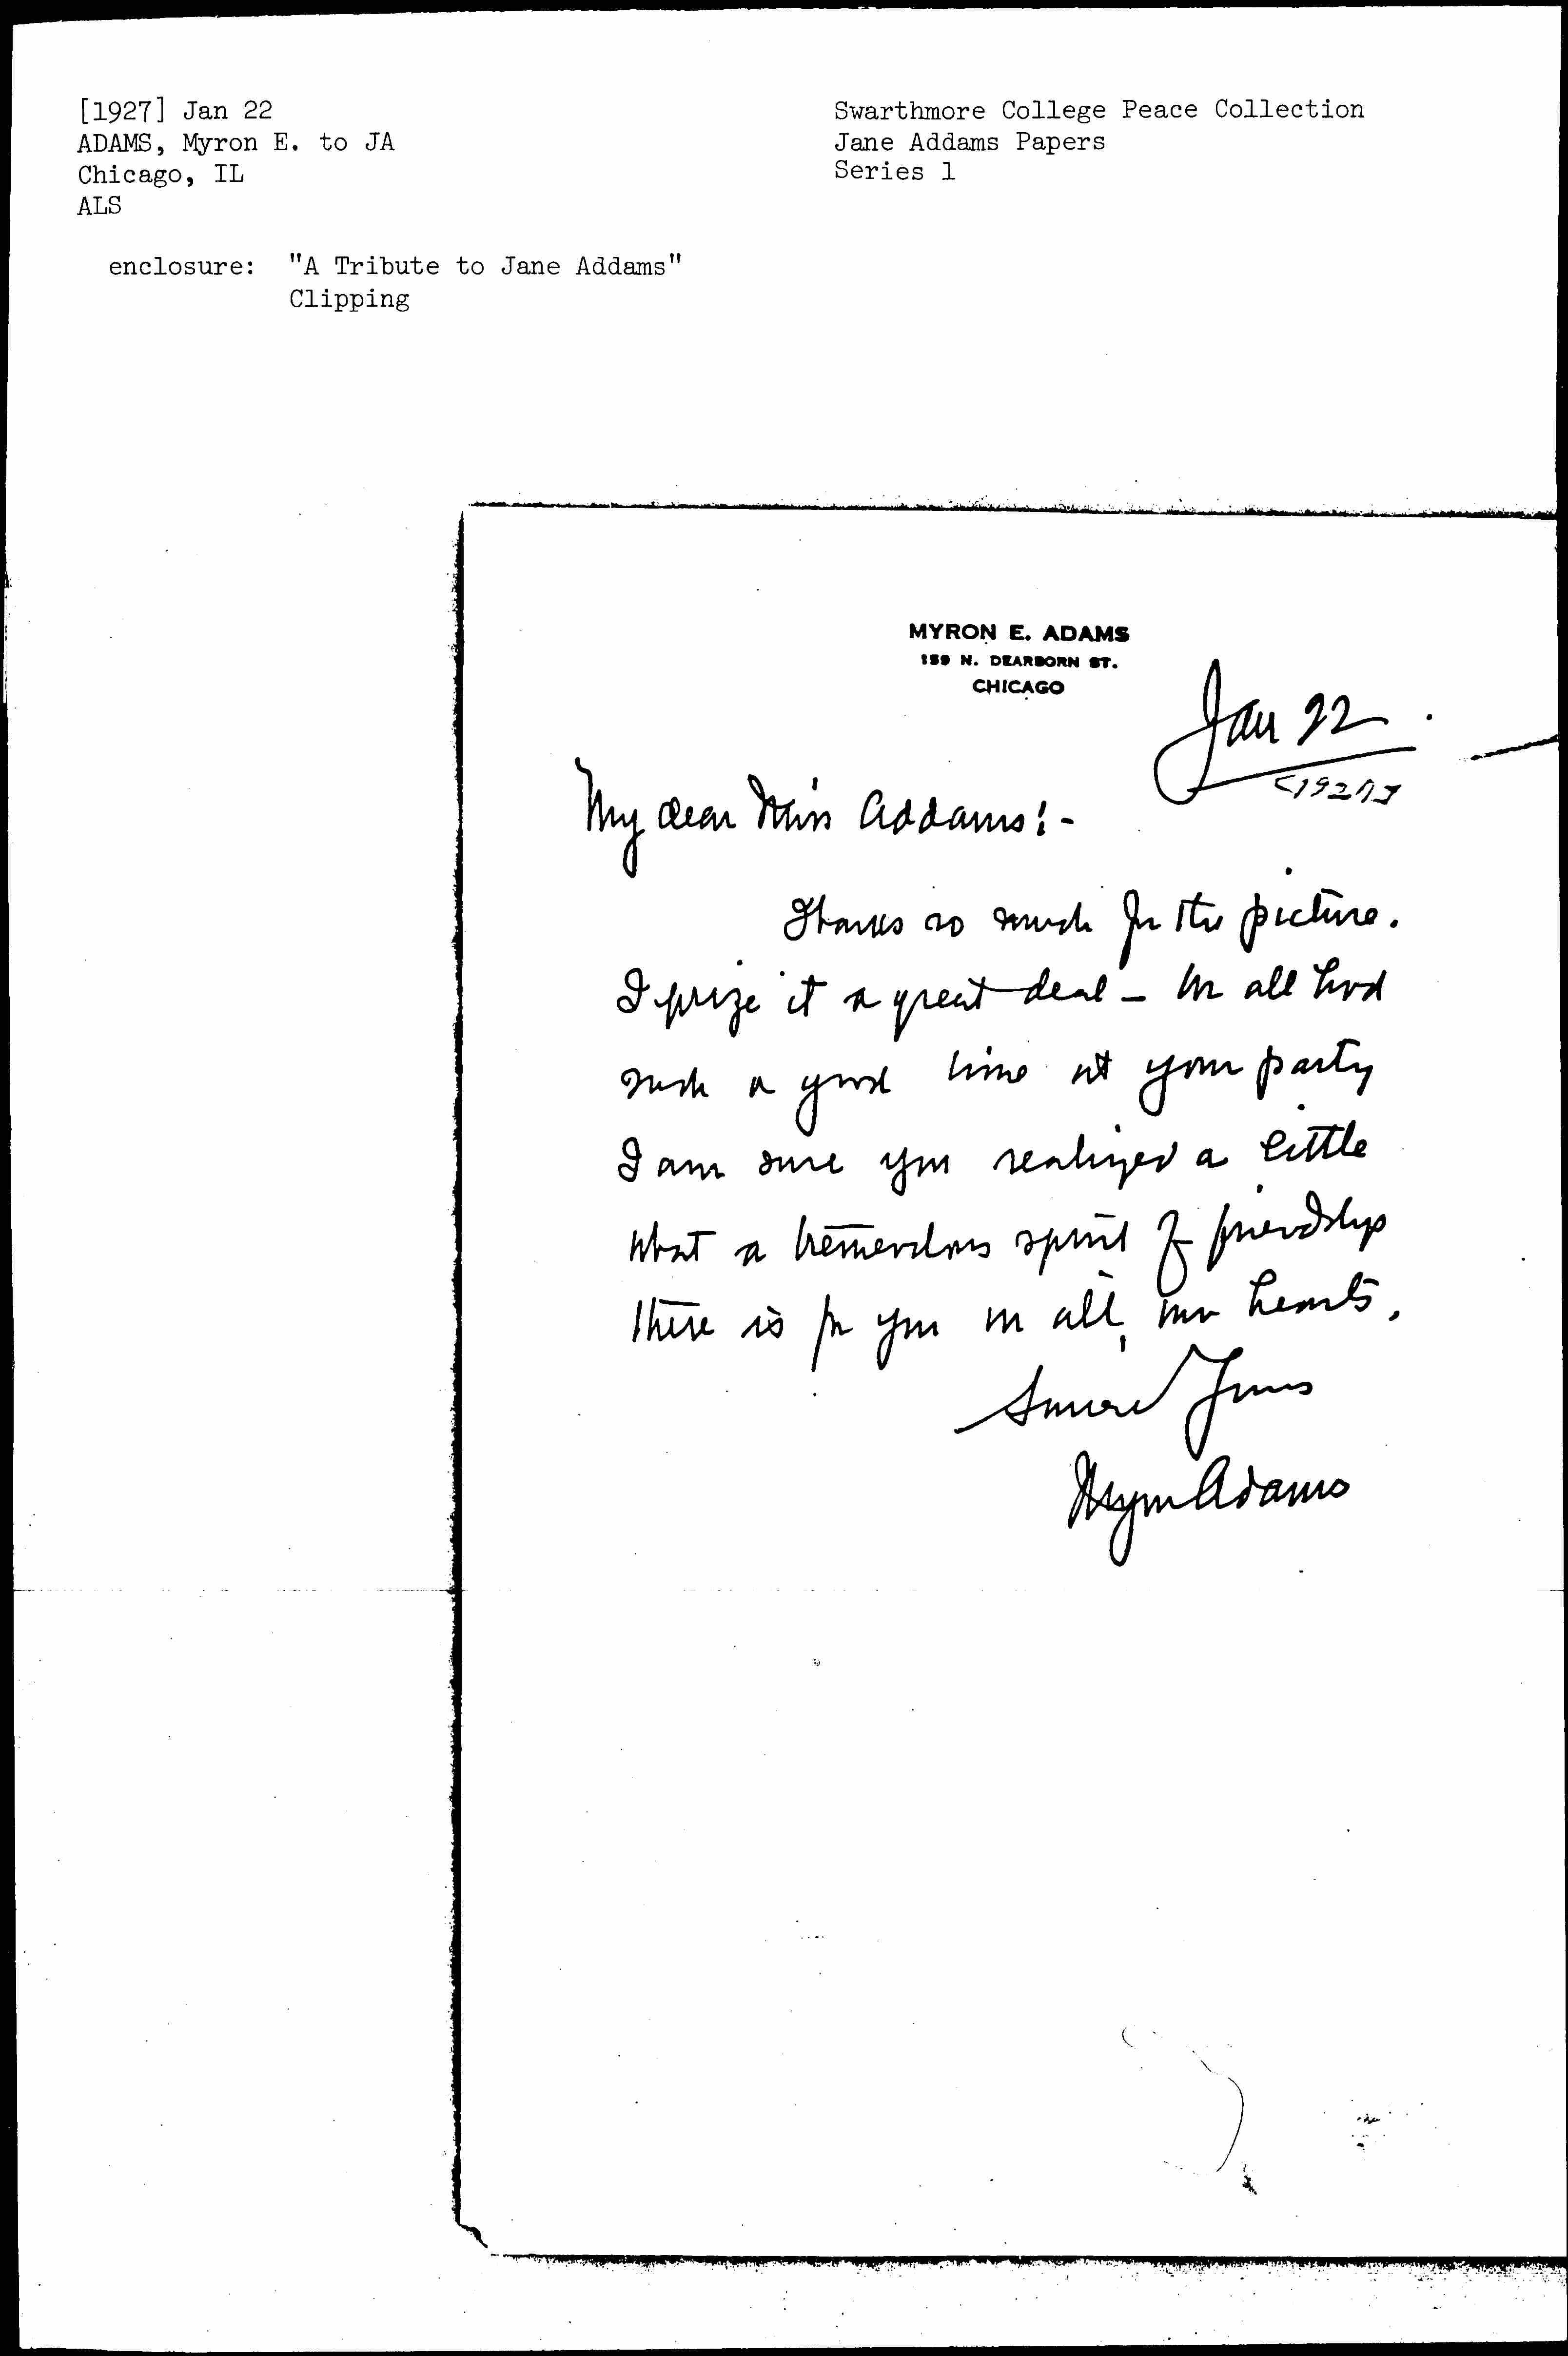 [1927] Jan 22
ADAMS, Myron E. to JA
Chicago, IL
ALS
enclosure: "A Tribute to Jane Addams"
Clipping
Swarthmore College Peace Collection
Jane Addams Papers
Series 1
MYRON E. ADAMS
159 N. DEARBORN ST.
CHICAGO
Jan 22
[1927]
My dear Miss Addams:-
Thanks so much for the picture.
I prize it a great deal - We all had
such a good time at your party
I am sure you realized a little
what a tremendous spirit of friendship
there is for you in all our hearts.
Yours
Myron Adams